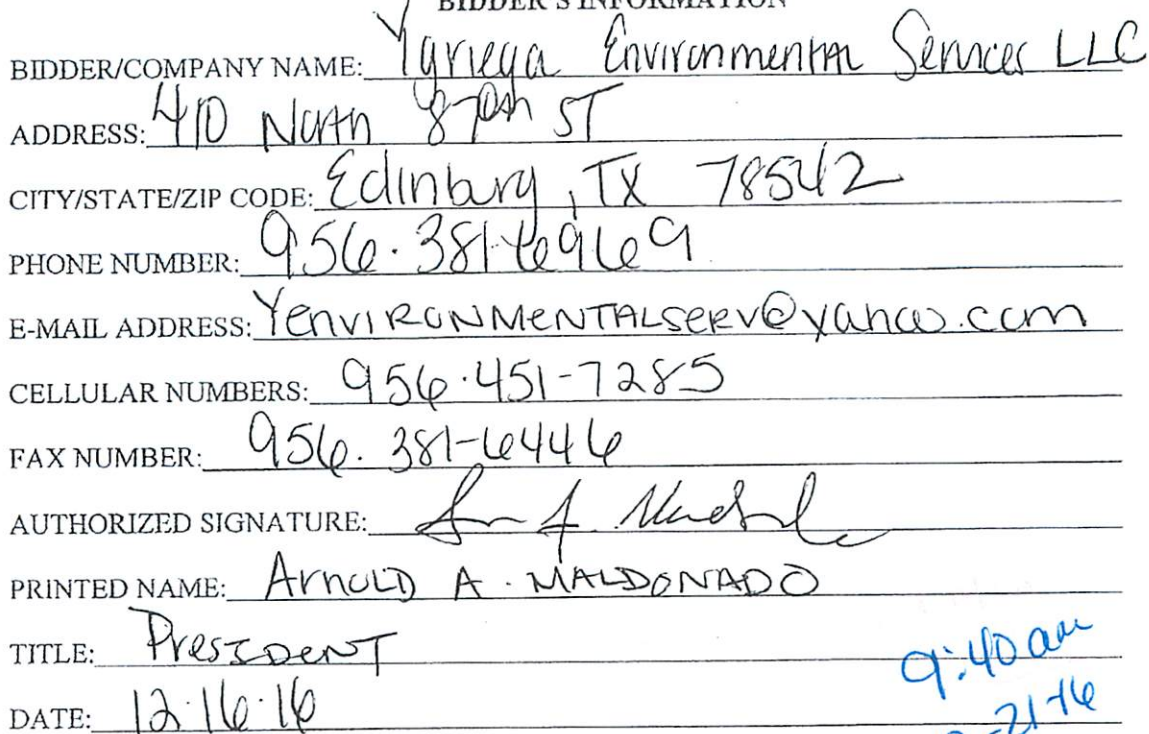 BIDDER'S INFORMATION
BIDDER/COMPANY NAME: Ygriega Environmental Services LLC
ADDRESS: 410 North 87th ST
CITY/STATE/ZIP CODE: Edinburg, TX 78542
PHONE NUMBER: 956.381-6969
E-MAIL ADDRESS: YENVIRONMENTALSERV@yahoo.com
CELLULAR NUMBERS: 956.451-7285
FAX NUMBER: 956.381-6446
AUTHORIZED SIGNATURE:
PRINTED NAME: Arnold A. MALDONADO
TITLE: PRESIDENT
9:40 am
DATE: 12.16.16
-21-16